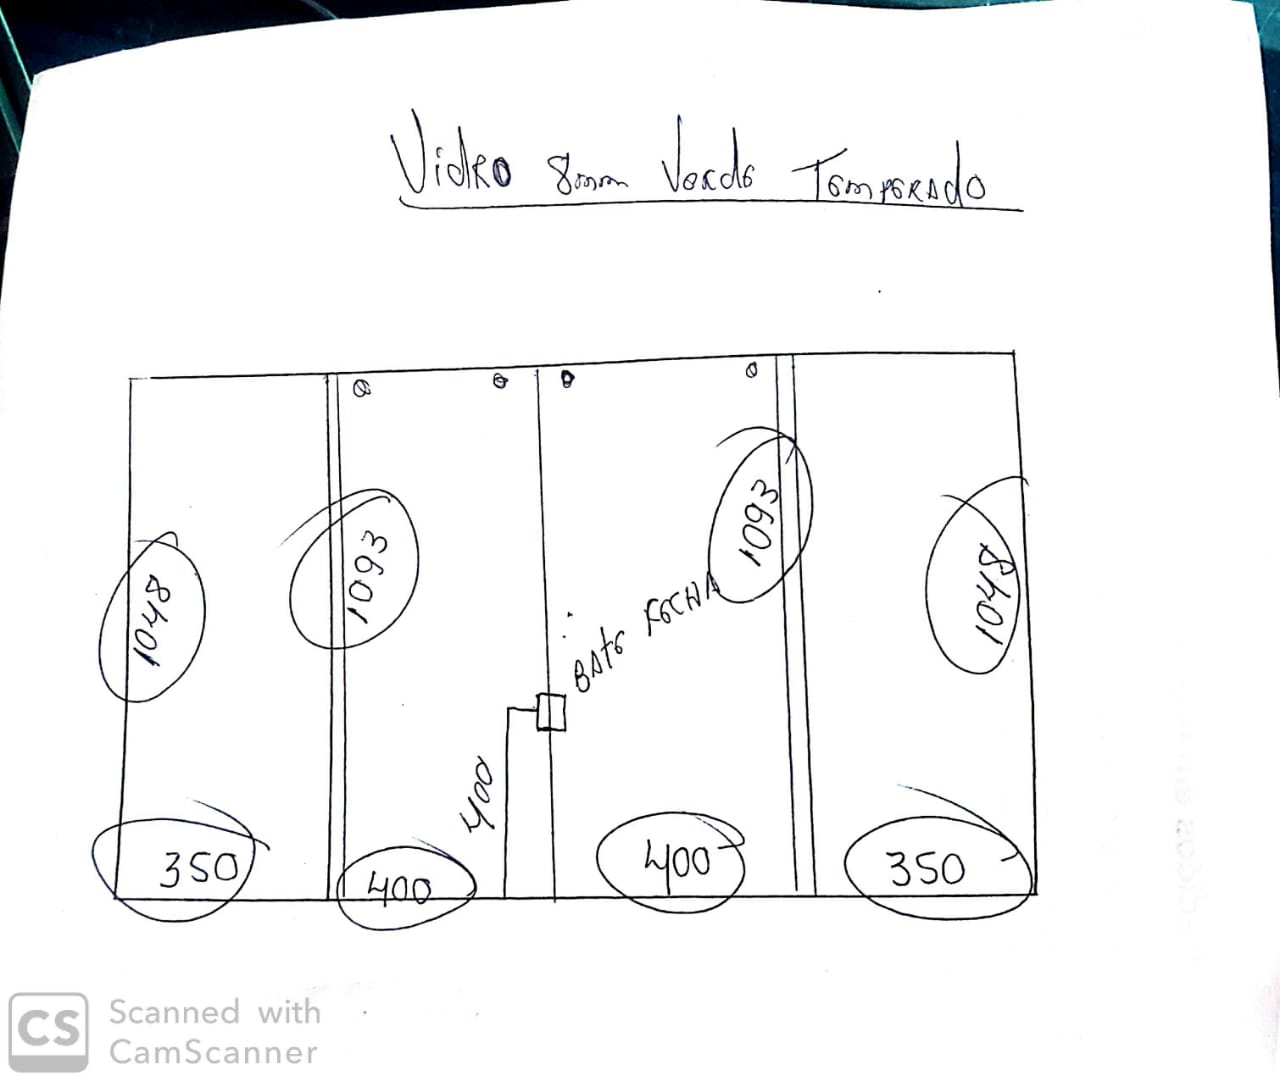 Vidro 8mm Verde Temperado
1048
1093
1093
1048
Bate Fecha
400
350
400
400
350
CS Scanned with
CamScanner